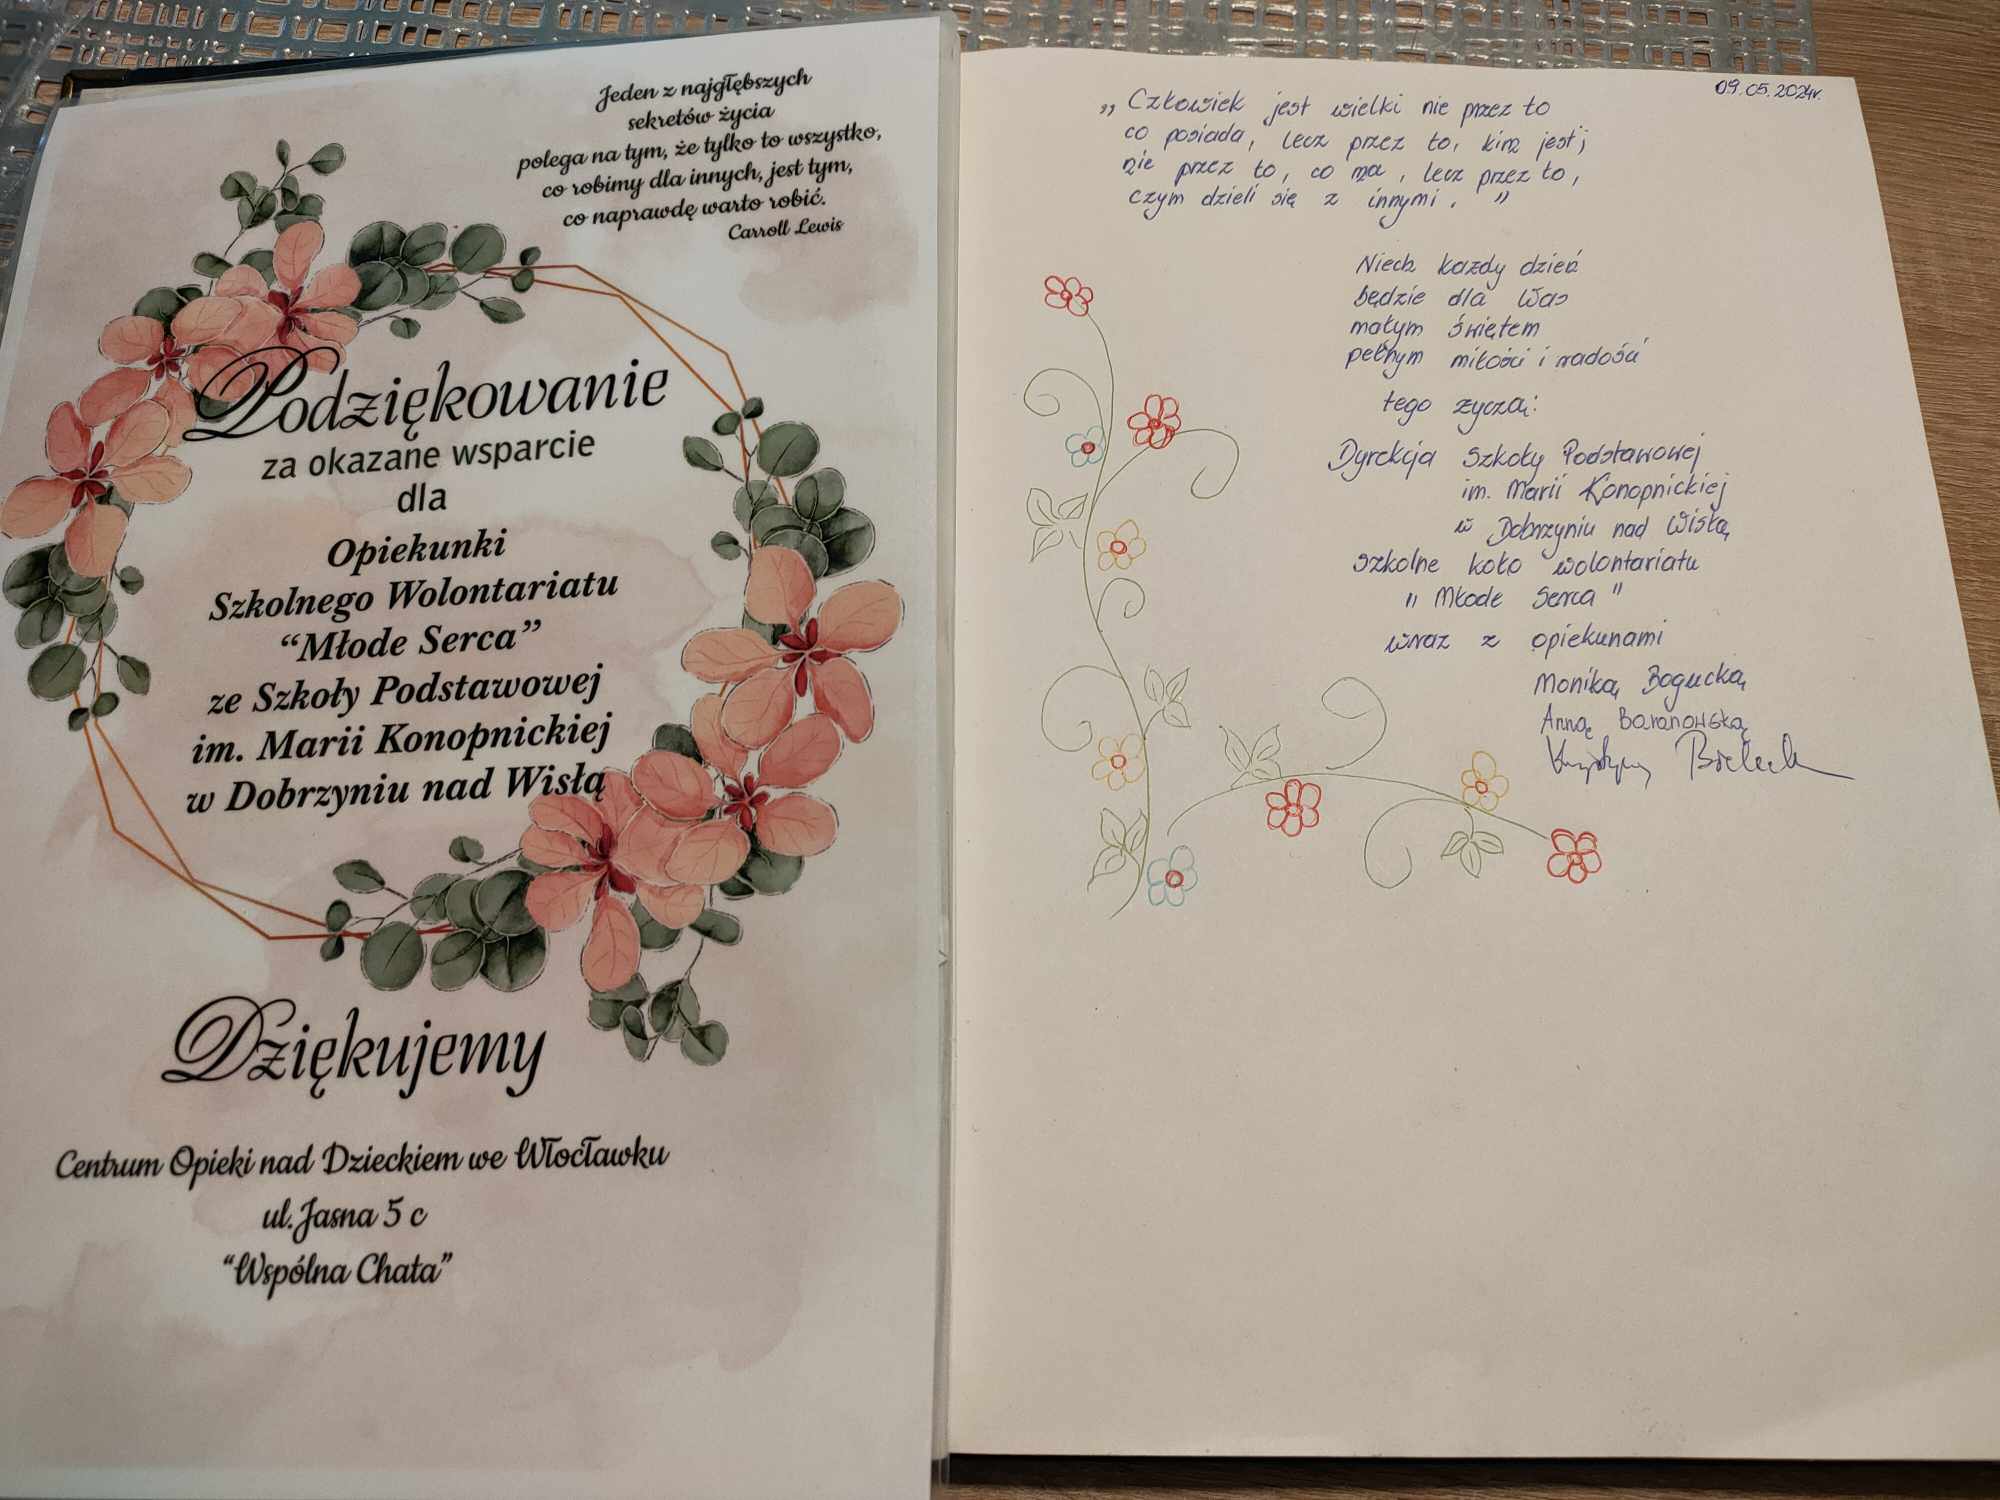 Jeden z najgłębszych
sekretów życia
polega na tym, że tylko to wszystko,
co robimy dla innych, jest tym,
co naprawdę warto robić.
Carroll Lewis
Podziękowanie
za okazane wsparcie
dla
Opiekunki
Szkolnego Wolontariatu
“Młode Serca”
ze Szkoły Podstawowej
im. Marii Konopnickiej
w Dobrzyniu nad Wisłą
Dziękujemy
Centrum Opieki nad Dzieckiem we Włocławku
ul. Jasna 5 c
“Wspólna Chata”
09.05.2024r.
„ Człowiek jest wielki nie przez to
co posiada, lecz przez to, kim jest;
nie przez to, co ma, lecz przez to,
czym dzieli się z innymi. ”
Niech każdy dzień
będzie dla Was
małym świętem
pełnym miłości i radości
tego życzą:
Dyrekcja Szkoły Podstawowej
im. Marii Konopnickiej
w Dobrzyniu nad Wisłą
Szkolne koło wolontariatu
" Młode Serca "
wraz z opiekunami
Moniką Bogucką
Anną Baranowską